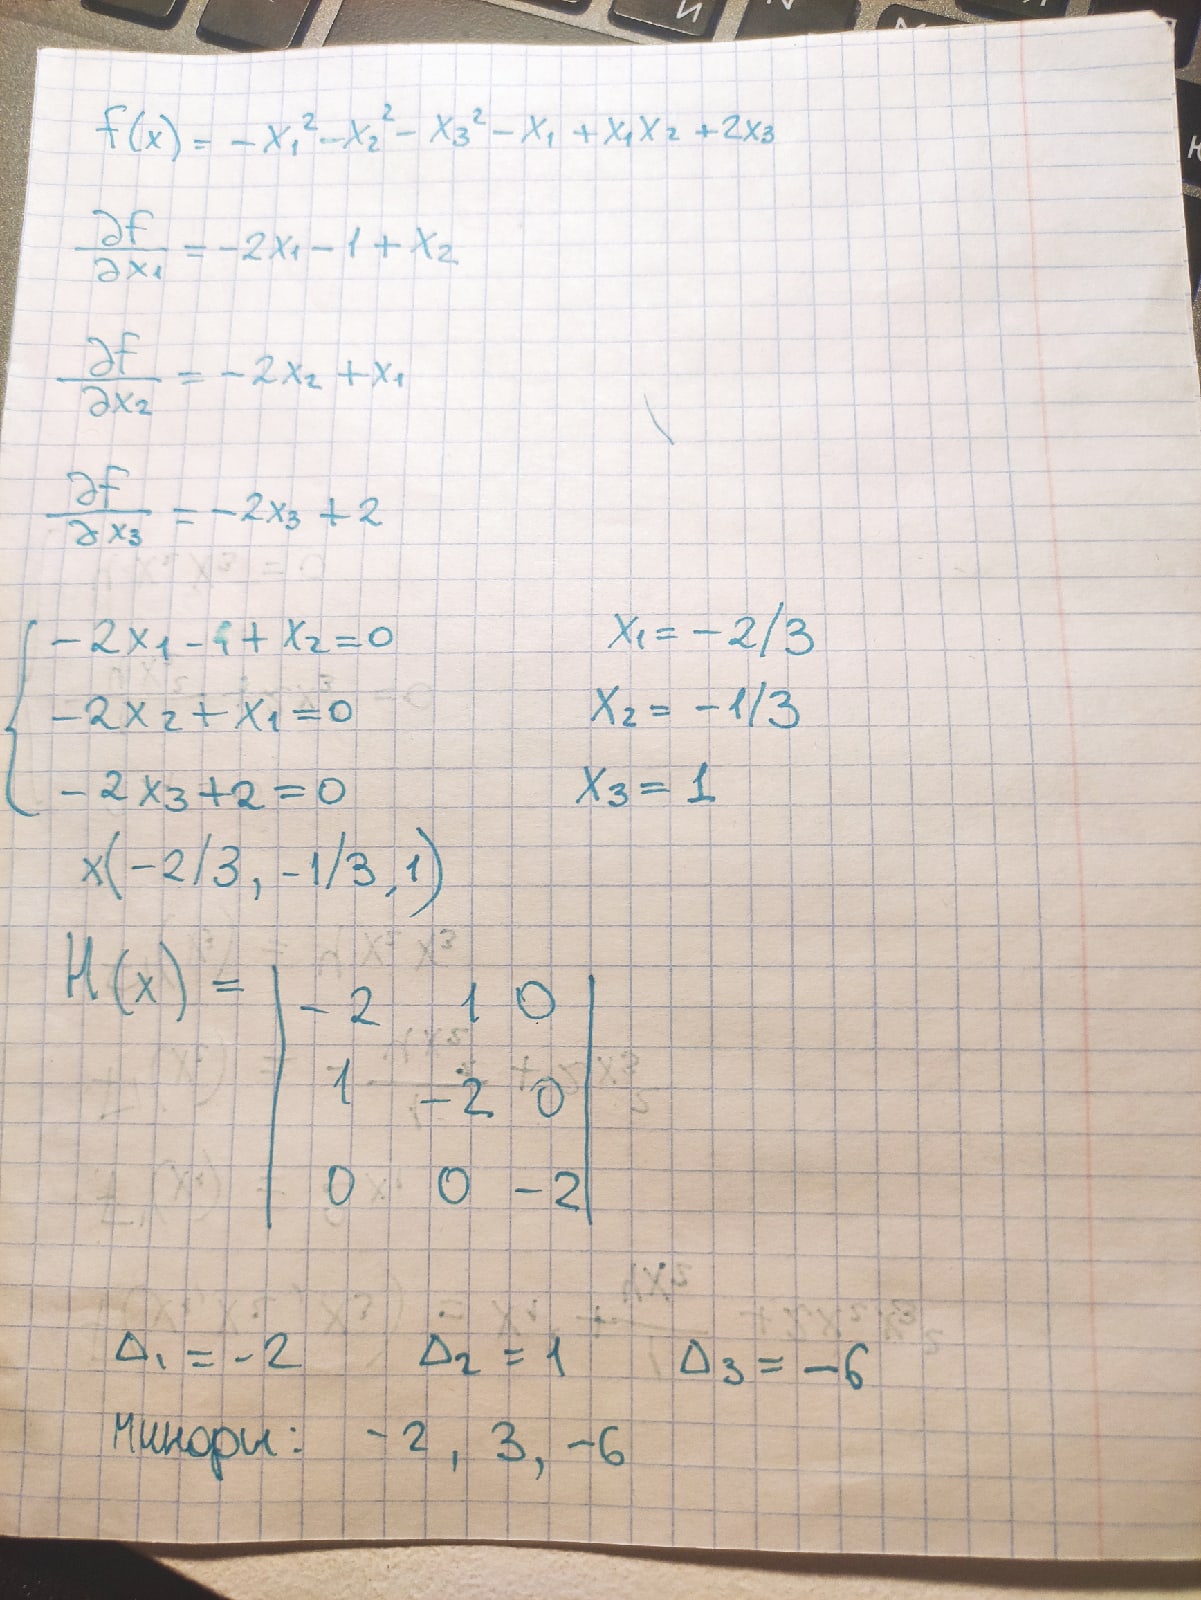 f(x) = -x₁² - x₂² - x₃² - x₁ + x₁x₂ + 2x₃
∂f/∂x₁ = -2x₁ - 1 + x₂
∂f/∂x₂ = -2x₂ + x₁
∂f/∂x₃ = -2x₃ + 2
-2x₁ - 1 + x₂ = 0 x₁ = -2/3
-2x₂ + x₁ = 0 x₂ = -1/3
-2x₃ + 2 = 0 x₃ = 1
x(-2/3, -1/3, 1)
H(x) = | -2 1 0 |
1 -2 0
0 0 -2
Δ₁ = -2 Δ₂ = 1 Δ₃ = -6
Минори: -2, 3, -6